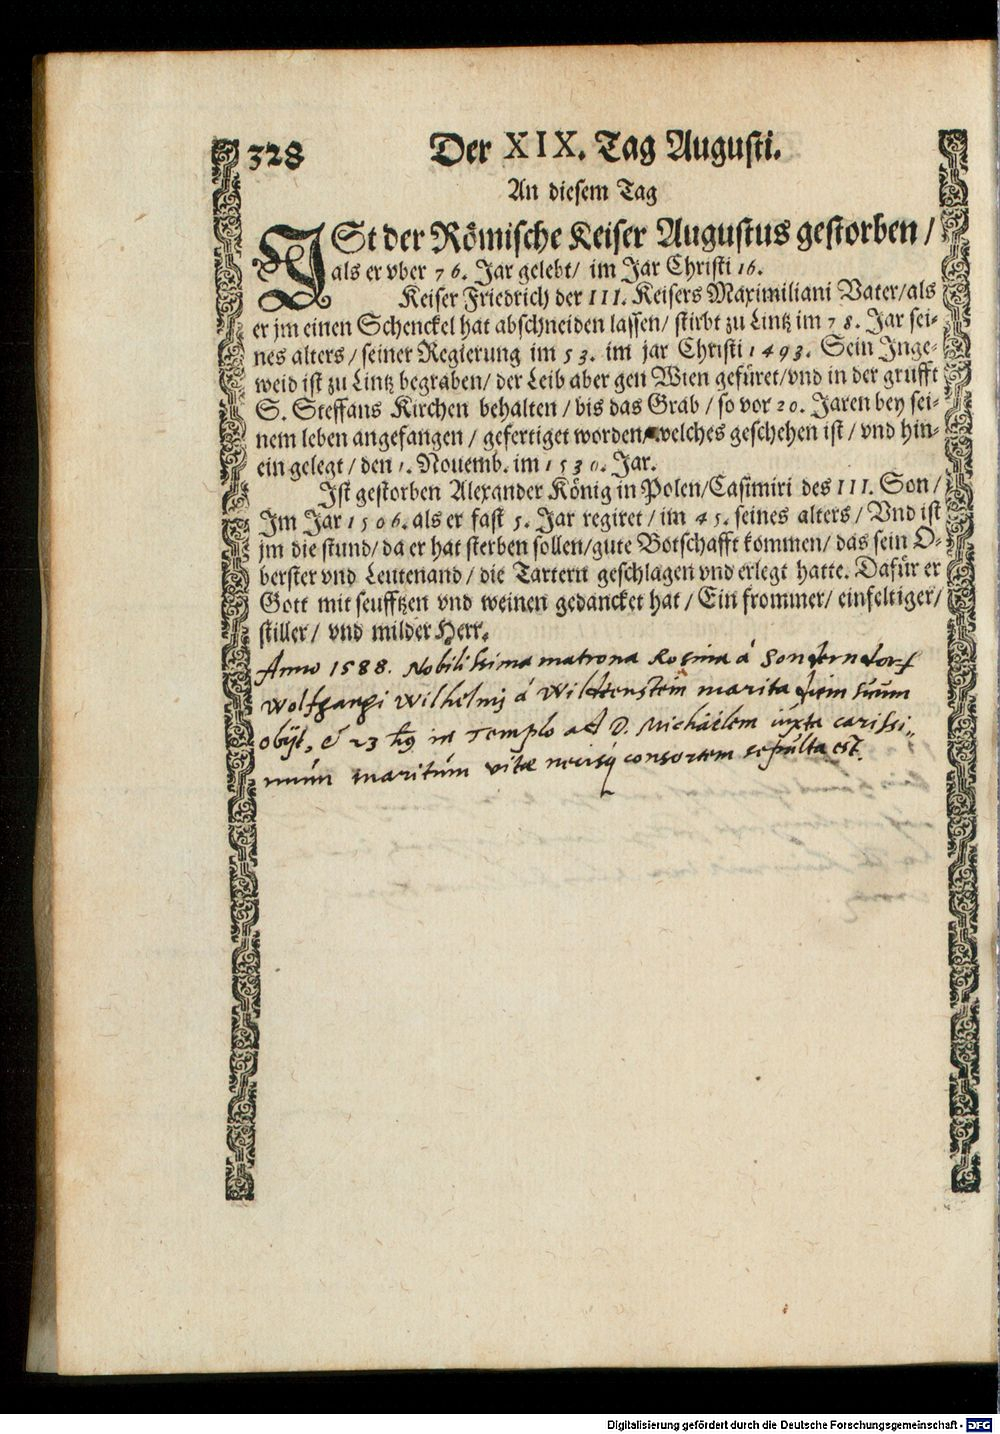 328 Der XIX. Tag Augusti.
An diesem Tag
ISt der Römische Keiser Augustus gestorben /
als er vber 76. Jar gelebt / im Jar Christi 16.
Keiser Friedrich der III. Keisers Maximiliani Vater / als
er jm einen Schenckel hat abschneiden lassen / stirbt zu Lintz im 78. Jar sei-
nes alters / seiner Regierung im 53. im jar Christi 1493. Sein Inge-
weid ist zu Lintz begraben / der Leib aber gen Wien gefüret / vnd in der grufft
S. Steffans Kirchen behalten / bis das Grab / so vor 20. Jaren bey sei-
nem leben angefangen / gefertiget worden / welches geschehen ist / vnd hin-
ein gelegt / den 1. Nouemb. im 1530. Jar.
Ist gestorben Alexander König in Polen / Casimiri des III. Son /
Im Jar 1506. als er fast 5. Jar regiret / im 45. seines alters / Vnd ist
jm die stund / da er hat sterben sollen / gute Botschafft kommen / das sein O-
berster vnd Leutenand / die Tartern geschlagen vnd erlegt hatte. Dafür er
Gott mit seufftzen vnd weinen gedancket hat / Ein frommer / einfeltiger /
stiller / vnd milder Herr.
Anno 1588. Nobilissima matrona Rosina á Sonderndorf
Wolfgangi Wilhelmj á Wildtenstein marita diem súum
obijt, & 23 in Templo ad D. Michäelem iúxta carissi,,
múm maritúm vitæ necisq́ consortem sepúlta est.
Digitalisierung gefördert durch die Deutsche Forschungsgemeinschaft - DFG